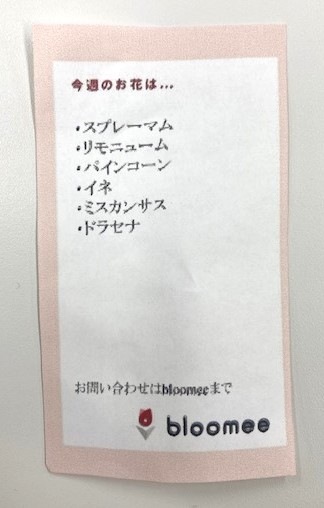 今週のお花は...
・スプレーマム
・リモニューム
・パインコーン
・イネ
・ミスカンサス
・ドラセナ
お問い合わせはbloomeeまで
bloomee